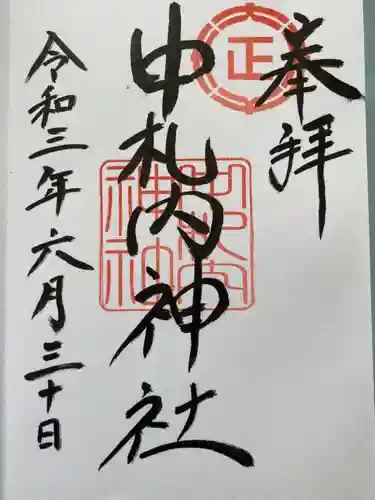 奉拝
正
中札内神社
中札内神社
令和三年六月三十日